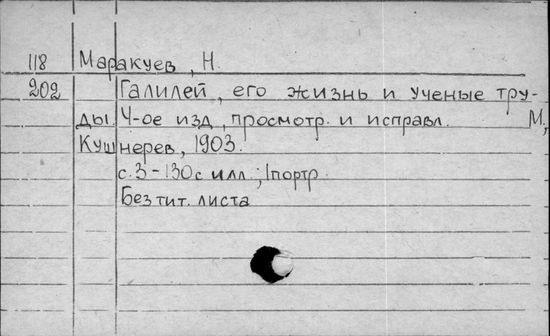 118 Маракуев, Н.
202 Галилей, его жизнь и ученые тру-
ды. 4-ое изд., просмотр. и исправл. М,
Кушнерев, 1903.
с. 3-130 с илл.; 1портр.
Без тит. листа